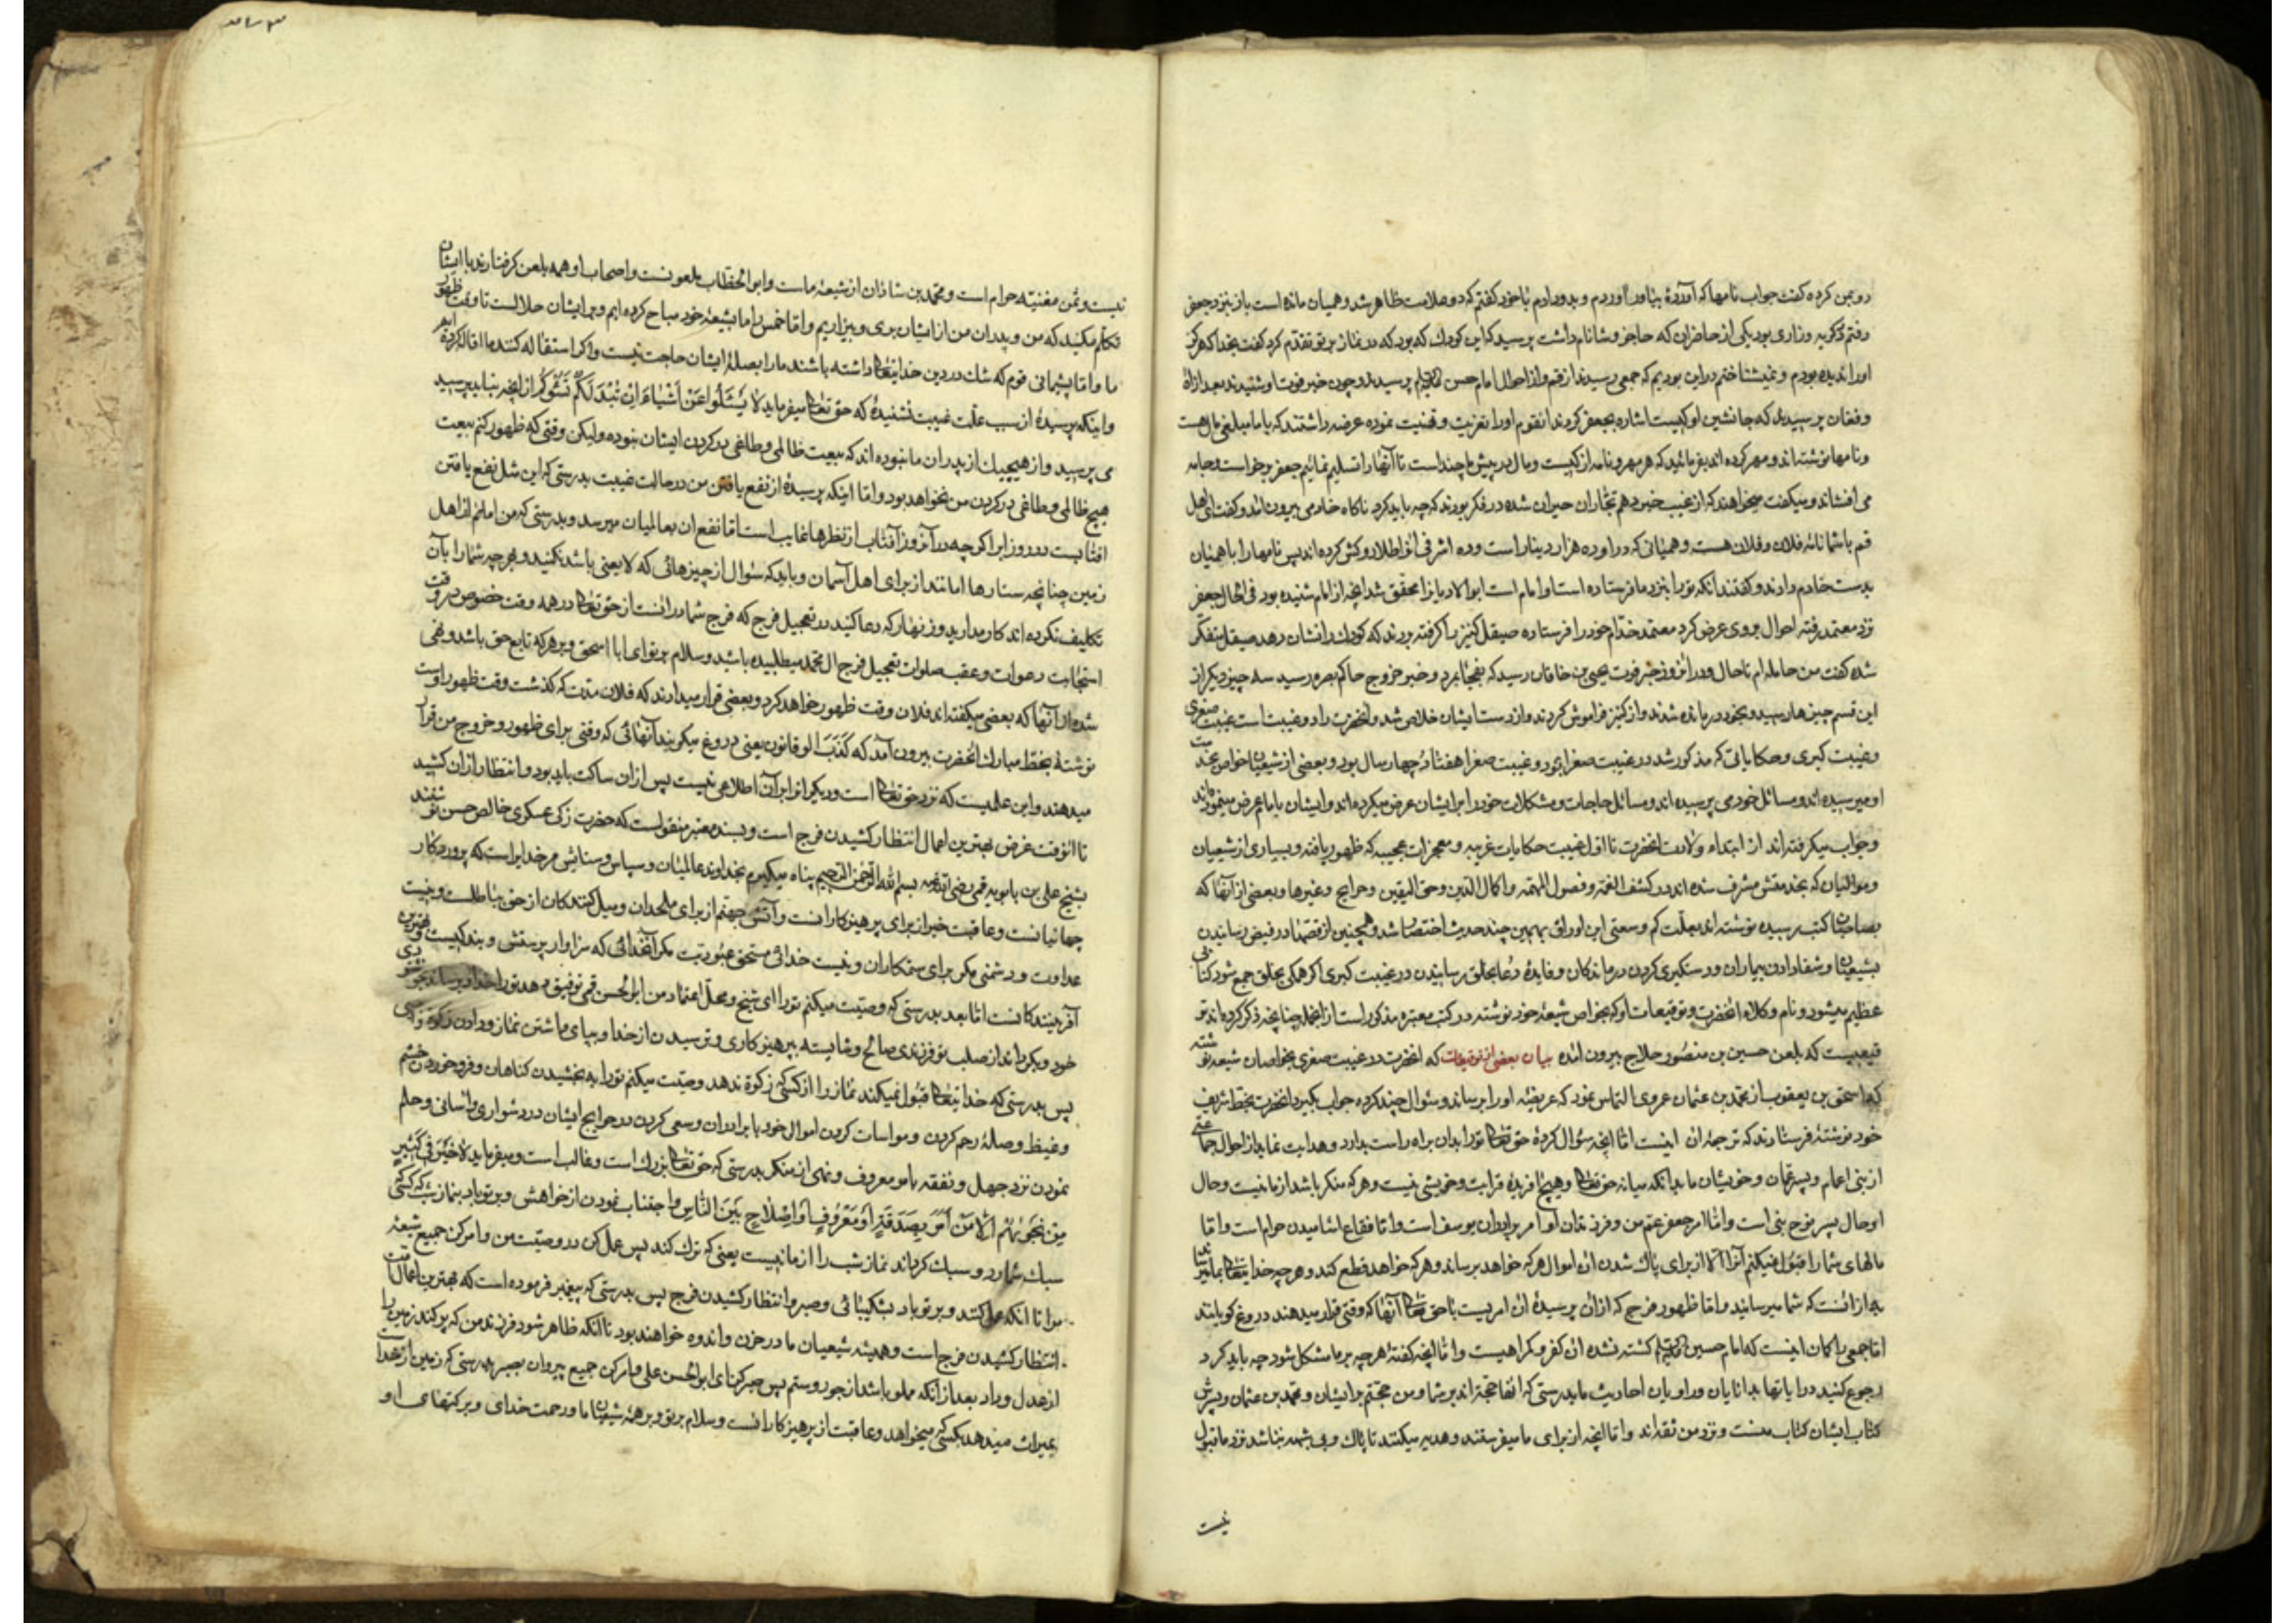 رو بمن کرده گفت جواب نامها که آوردهٔ بیاور آوردم و بدو دادم با خود گفتم که دو علامت ظاهر شد و همیان مانده است باز بنزد جعفر
رفتم که گریه و زاری بود یکی از حاضران که حاجز وشا نام داشت پرسید که این کودک که بود که در نماز بر تو تقدّم کرد گفت بخدا که هرگز
اورا ندیده بودم و نمیشناختم در این بودیم که جمعی رسیدند از قم و از احوال امام حسن پرسیدند و چون خبر فوت او شنیدند بعد از آه
و فغان پرسیدند که جانشین او کیست اشاره بجعفر کردند آنقوم اورا تعزیت و تهنیت نموده عرضه داشتند که با ما مبلغی مال هست
و نامها نوشته‌اند و مهر کرده‌اند بفرمائید که هر مهر و نامه از کیست و مال در پیش ما چند است تا آنها را تسلیم نمائیم جعفر برخواست و جامه
می افشاند و میگفت میخواهند که از غیب خبر دهم تجّاران حیران شده در فکر بودند که چه باید کرد ناکاه خادمی بیرون آمد و گفت ای اهل
قم با شما نامهٔ فلان و فلان هست و همیانی که در او ده هزار دینار است و ده اشرفی آنرا طلا روکش کرده‌اند پس نامها را با همیان
بدست خادم دادند و گفتند آنکه تو را بنزد ما فرستاده است او امام است ابو الادیان را محقّق شد آنچه از امام شنیده بود فی الحال جعفر
نزد معتمد رفته احوال بروی عرض کرد معتمد خدّام خود را فرستاده صیقل کنیز را گرفته بردند که کودک را نشان دهد صیقل منکر
شده گفت من حامله‌ام تا حال و در آنروز خبر فوت یحیی بن خاقان رسید که بفجأ بمرد و خبر خروج حاکم بصره رسید سه چیز دیگر از
این قسم چیزها رسید و بخود درمانده شدند و از کنیز فراموش کردند و از دست ایشان خلاص شد و آنحضرت را دو غیبت است غیبت صغری
و غیبت کبری و حکایاتی که مذکور شد در غیبت صغرا بود و غیبت صغرا هفتاد و چهار سال بود و بعضی از شیعیان خواص بخدمت
او میرسیده‌اند و مسائل خود می پرسیده‌اند و مسائل حاجات و مشکلات خود را بر ایشان عرض میکرده‌اند و ایشان با امام عرض مینموده‌اند
و جواب میگرفته‌اند از ابتداء ولادت آنحضرت تا اوّل غیبت حکایات غریبه و معجزات عجیبه که ظهور یافته و بسیاری از شیعیان
و موالیان که بخدمتش مشرف شده‌اند در کشف الغمّه و فصول المهمّه و اکمال الدّین و حقّ الیقین و خرایج و غیرها و بعضی از آنها که
بصاحبان کتب رسیده نوشته‌اند بعلّت کم وسعتی این اوراق بهمین چند حدیث اختصار شد و همچنین از قصّها در فیض رسانیدن
بشیعیان و شفا دادن بیماران و دستگیری کردن درماندکان و فایدهٔ دعا بخلق رسانیدن در غیبت کبری اگر همگی بخلق جمع شود کتابی
عظیم میشود و نام وکلاء آنحضرت و توقیعات او که بخواص شیعهٔ خود نوشته در کتب معتبره مذکور است از آنجمله چنانچه ذکر کرده‌اند تو
قیعیست که بلعن حسین بن منصور حلّاج بیرون آمده بیان بعضی از توقیعات که آنحضرت در غیبت صغری بخواصان شیعه نوشته
که اسحق بن یعقوب از محمّد بن عثمان عمروی التماس نمود که عریضه اورا برساند و سئوال چند کرده جواب بگیرد آنحضرت بخطّ شریف
خود نوشته فرستادند که ترجمهٔ آن اینست امّا آنچه سئوال کردهٔ حق تعالی تورا بدان براه راست بدارد و هدایت نماید از احوال جماعتی
از بنی اعمام و پسر عمّان و خویشان ما بدانکه میانه حق تعالی و هیچ آفریدهٔ قرابت و خویشی نیست و هر که منکر باشد از ما نیست و حال
او حال پسر نوح نبی است و امّا امر جعفر عمّ من و فرزندان او امر برادران یوسف است و امّا فقاع آشامیدن حرام است و امّا
مالهای شما را قبول نمیکنم آنرا الّا از برای پاک شدن آن اموال هر که خواهد برساند و هر که خواهد قطع کند و هر چه خدایتعالی بما میرساند
به از آنست که شما میرسانید و امّا ظهور فرج که از آن پرسیدهٔ آن امریست با حق تعالی آنها که وقتی قرار میدهند دروغ گویانند
امّا جمعی را گمان اینست که امام حسین کشته نشده آن کفر و گمراهیست و امّا آنچه گفتهٔ هر چه بر ما مشکل شود چه باید کرد
رجوع کنید در آیاتها بدانایان و راویان احادیث ما بدرستی که آنها حجّت‌اند بر شما و من حجّتم بر ایشان و محمّد بن عثمان و پدرش
کتاب ایشان کتاب منست و نزد من ثقه‌اند و امّا آنچه از برای ما میفرستند و هدیه میکنند تا پاک و بی شبهه نباشد نزد ما قبول
نیست
نیست و ثمن مغنیّه حرام است و محمّد بن شاذان از شیعهٔ ماست و ابو الخطّاب ملعونست و اصحاب او همه بلعن گرفتارند با ایشان
تکلّم مکنید که من و پدران من از ایشان بری و بیزاریم و امّا خمس را ما بشیعهٔ خود مباح کرده‌ایم و بر ایشان حلالست تا وقت ظهور
ما و امّا پشیمانی قوم که شک در دین خدایتعالی داشته باشند ما را بصلهٔ ایشان حاجت نیست و اگر استقاله کنند ما اقاله کرده‌ایم
و اینکه پرسیدهٔ از سبب علّت غیبت نشنیدهٔ که حق تعالی میفرماید لا یَسْئَلُوا عَنْ اَشْیاءَ اِنْ تُبْدَ لَکُمْ تَسُؤْکُمْ از آنچه نباید پرسید
می پرسید و از هیچیک از پدران ما نبوده‌اند که بیعت ظالمی و طاغی در گردن ایشان نبوده و لیکن وقتی که ظهور کنم بیعت
هیچ ظالمی و طاغی در گردن من نخواهد بود و امّا اینکه پرسیدهٔ از نفع یافتن من در حالت غیبت بدرستی که این مثل نفع یافتن
آفتابست در روز ابر اگر چه در آنروز آفتاب از نظرها غایب است امّا نفع آن بعالمیان میرسد و بدرستی که من امانم از اهل
زمین چنانچه ستارها امانند از برای اهل آسمان و باید که سئوال از چیزهائی که لا یعنی باشد نکنید و هر چه شما را بآن
تکلیف نکرده‌اند کار مدارید و زنهار که دعا کنید در تعجیل فرج که فرج شما در آنست از حق تعالی در همه وقت خصوص در وقت
استجابت دعوات و عقب صلوات تعجیل فرج آل محمّد میطلبیده باشید و سلام بر تو ای ابا اسحق و بر هر که تابع حق باشد و نهی
شده از آنها که بعضی میگفته‌اند فلان وقت ظهور خواهد کرد و بعضی قرار میدارند که فلان مدّت که گذشت وقت ظهور اوست
نوشتهٔ بخطّ مبارک آنحضرت بیرون آمد که کَذَبَ الوقاتون یعنی دروغ میگویند آنهائی که وقتی برای ظهور و خروج من قرار
میدهند و این علمیست که نزد حق تعالی است و دیگرانرا بر آن اطلاعی نیست پس از آن ساکت باید بود و انتظار از آن کشید
تا آنوقت غرض بهترین اعمال انتظار کشیدن فرج است و بسند معتبر منقولست که حضرت زکی عسکری خالص حسن نوشتند
بشیخ علی بن بابویه قمی رضی الله عنه بسم الله الرّحمن الرّحیم پناه میگیرم بخداوند عالمیان و سپاس و ستایش مر خدایراست که پروردکار
جهانیانست و عاقبت خیر از برای پرهیزکارانست و آتش جهنّم از برای ملحدان و میل کنندکان از حق بباطلست و نیست
عداوت و دشمنی مگر برای ستمکاران و نیست خدائی مستحق عبودیت مگر آنخدائی که سزاوار پرستش و بندگیست و بهترین
آفرینندکانست امّا بعد بدرستی که وصیّت میکنم تورا ای شیخ و محلّ اعتماد من ابو الحسن قمی توفیق دهد تورا خدا و برساند بخوشنودی
خود و بگرداند از صلب تو فرزندی صالح و شایسته بپرهیزکاری و ترسیدن از خدا و بپای داشتن نماز و دادن زکوة
پس بدرستی که خدایتعالی قبول نمیکند نماز را از کسی که زکوة ندهد وصیّت میکنم تورا به بخشیدن گناهان و فرو خوردن خشم
و غیظ و صلهٔ رحم کردن و مواسات کردن اموال خود با برادران و سعی کردن در حوایج ایشان در دشواری و آسانی و حلم
نمودن نزد جهل و تفقه بامر معروف و نهی از منکر بدرستی که حق تعالی بزرگ است و غالب است و میفرماید لا خَیْرَ فی کَثیرٍ
مِنْ نَجْوٰیهُمْ اِلّا مَنْ اَمَرَ بِصَدَقَةٍ اَوْ مَعْرُوفٍ اَوْ اِصْلاحٍ بَیْنَ النّاسِ و اجتناب نمودن از خواهش و بر تو باد بنماز شب که کسی
سبک شمارد و سبک گرداند نماز شب را از ما نیست یعنی که ترک کند پس عمل کن در وصیّت من و امر کن جمیع شیعهٔ
مرا تا آنکه عمل کنند و بر تو باد بشکیبائی و صبر و انتظار کشیدن فرج پس بدرستی که پیغمبر فرموده است که بهترین اعمال امّت
انتظار کشیدن فرج است و همیشه شیعیان ما در حزن و اندوه خواهند بود تا آنکه ظاهر شود فرزند من که پر کند زمین را
از عدل و داد بعد از آنکه مملو باشد از جور و ستم پس صبر کن ای ابو الحسن علی و امر کن جمیع پیروان بصبر بدرستی که زمین از خداست
بمیراث میدهد بکسی که میخواهد و عاقبت از پرهیزکارانست و سلام بر تو و بر همه شیعیان ما و رحمت خدای و برکتهای او